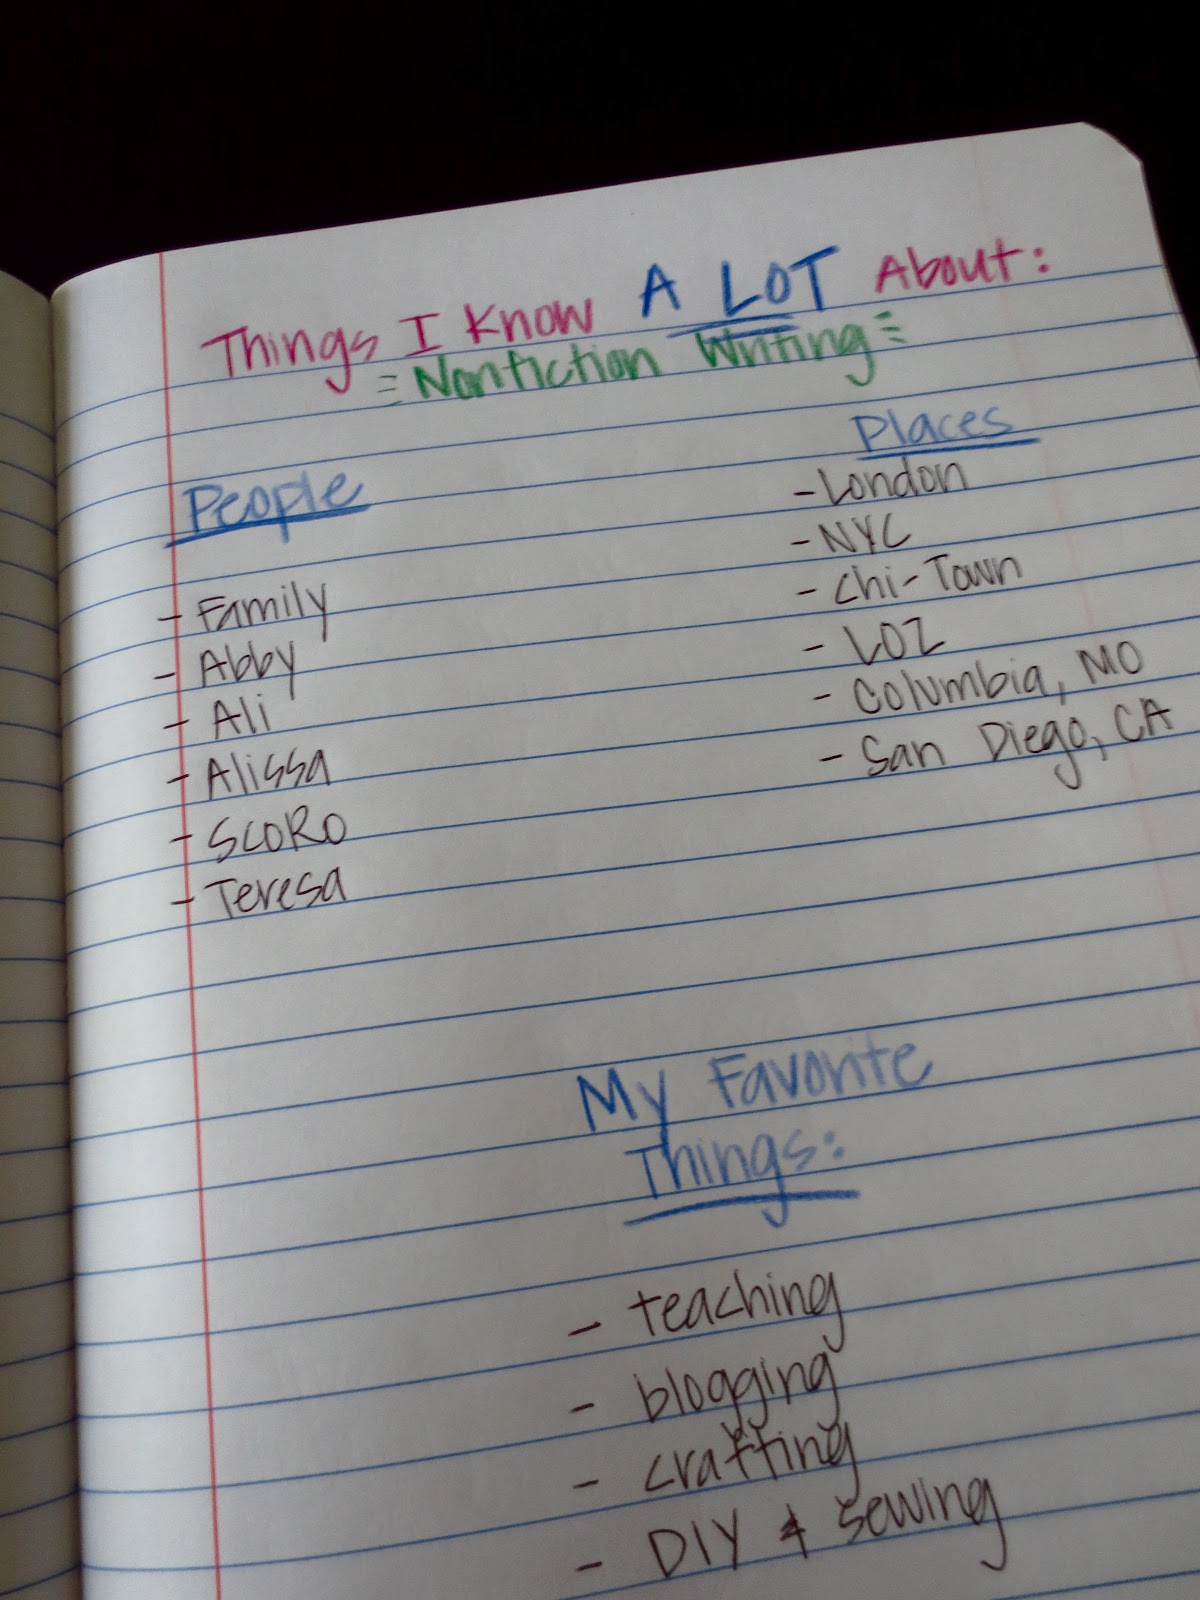 Things I Know A LOT About:
= Nonfiction Writing =
People
- Family
- Abby
- Ali
- Alissa
- SCORO
- Teresa
Places
- London
- NYC
- Chi-Town
- LOZ
- Columbia, MO
- San Diego, CA
My Favorite
Things:
- teaching
- blogging
- crafting
- DIY & sewing